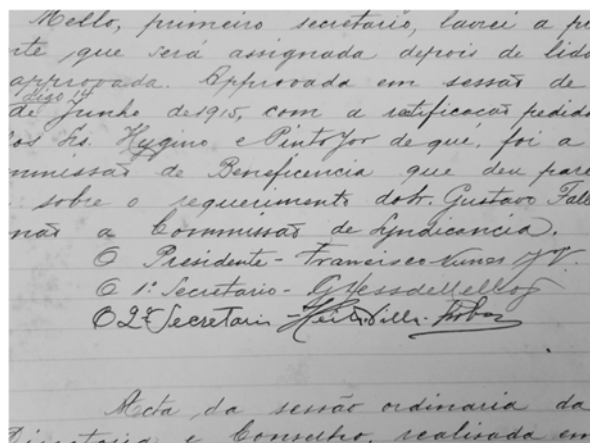 Mello, primeiro secretario, lavrei a pre
nte que será assignada depois de lida
approvada. Approvada em sessão de
digo 14
de Junho de 1915, com a ratificacaõ pedida
los Srs. Hygino e Pinto Jor de que, foi a
mmissaõ de Beneficencia que deu pare
sobre o requerimento do Sr. Gustavo Fall
naõ a Commissaõ de Syndicancia.
O Presidente - Francisco Nunes
O 1º Secretario - G Hess de Mello
O 2º Secretario - Heitor Villa-Lobos
Acta da sessão ordinaria da
Directoria e Conselho, realizada em